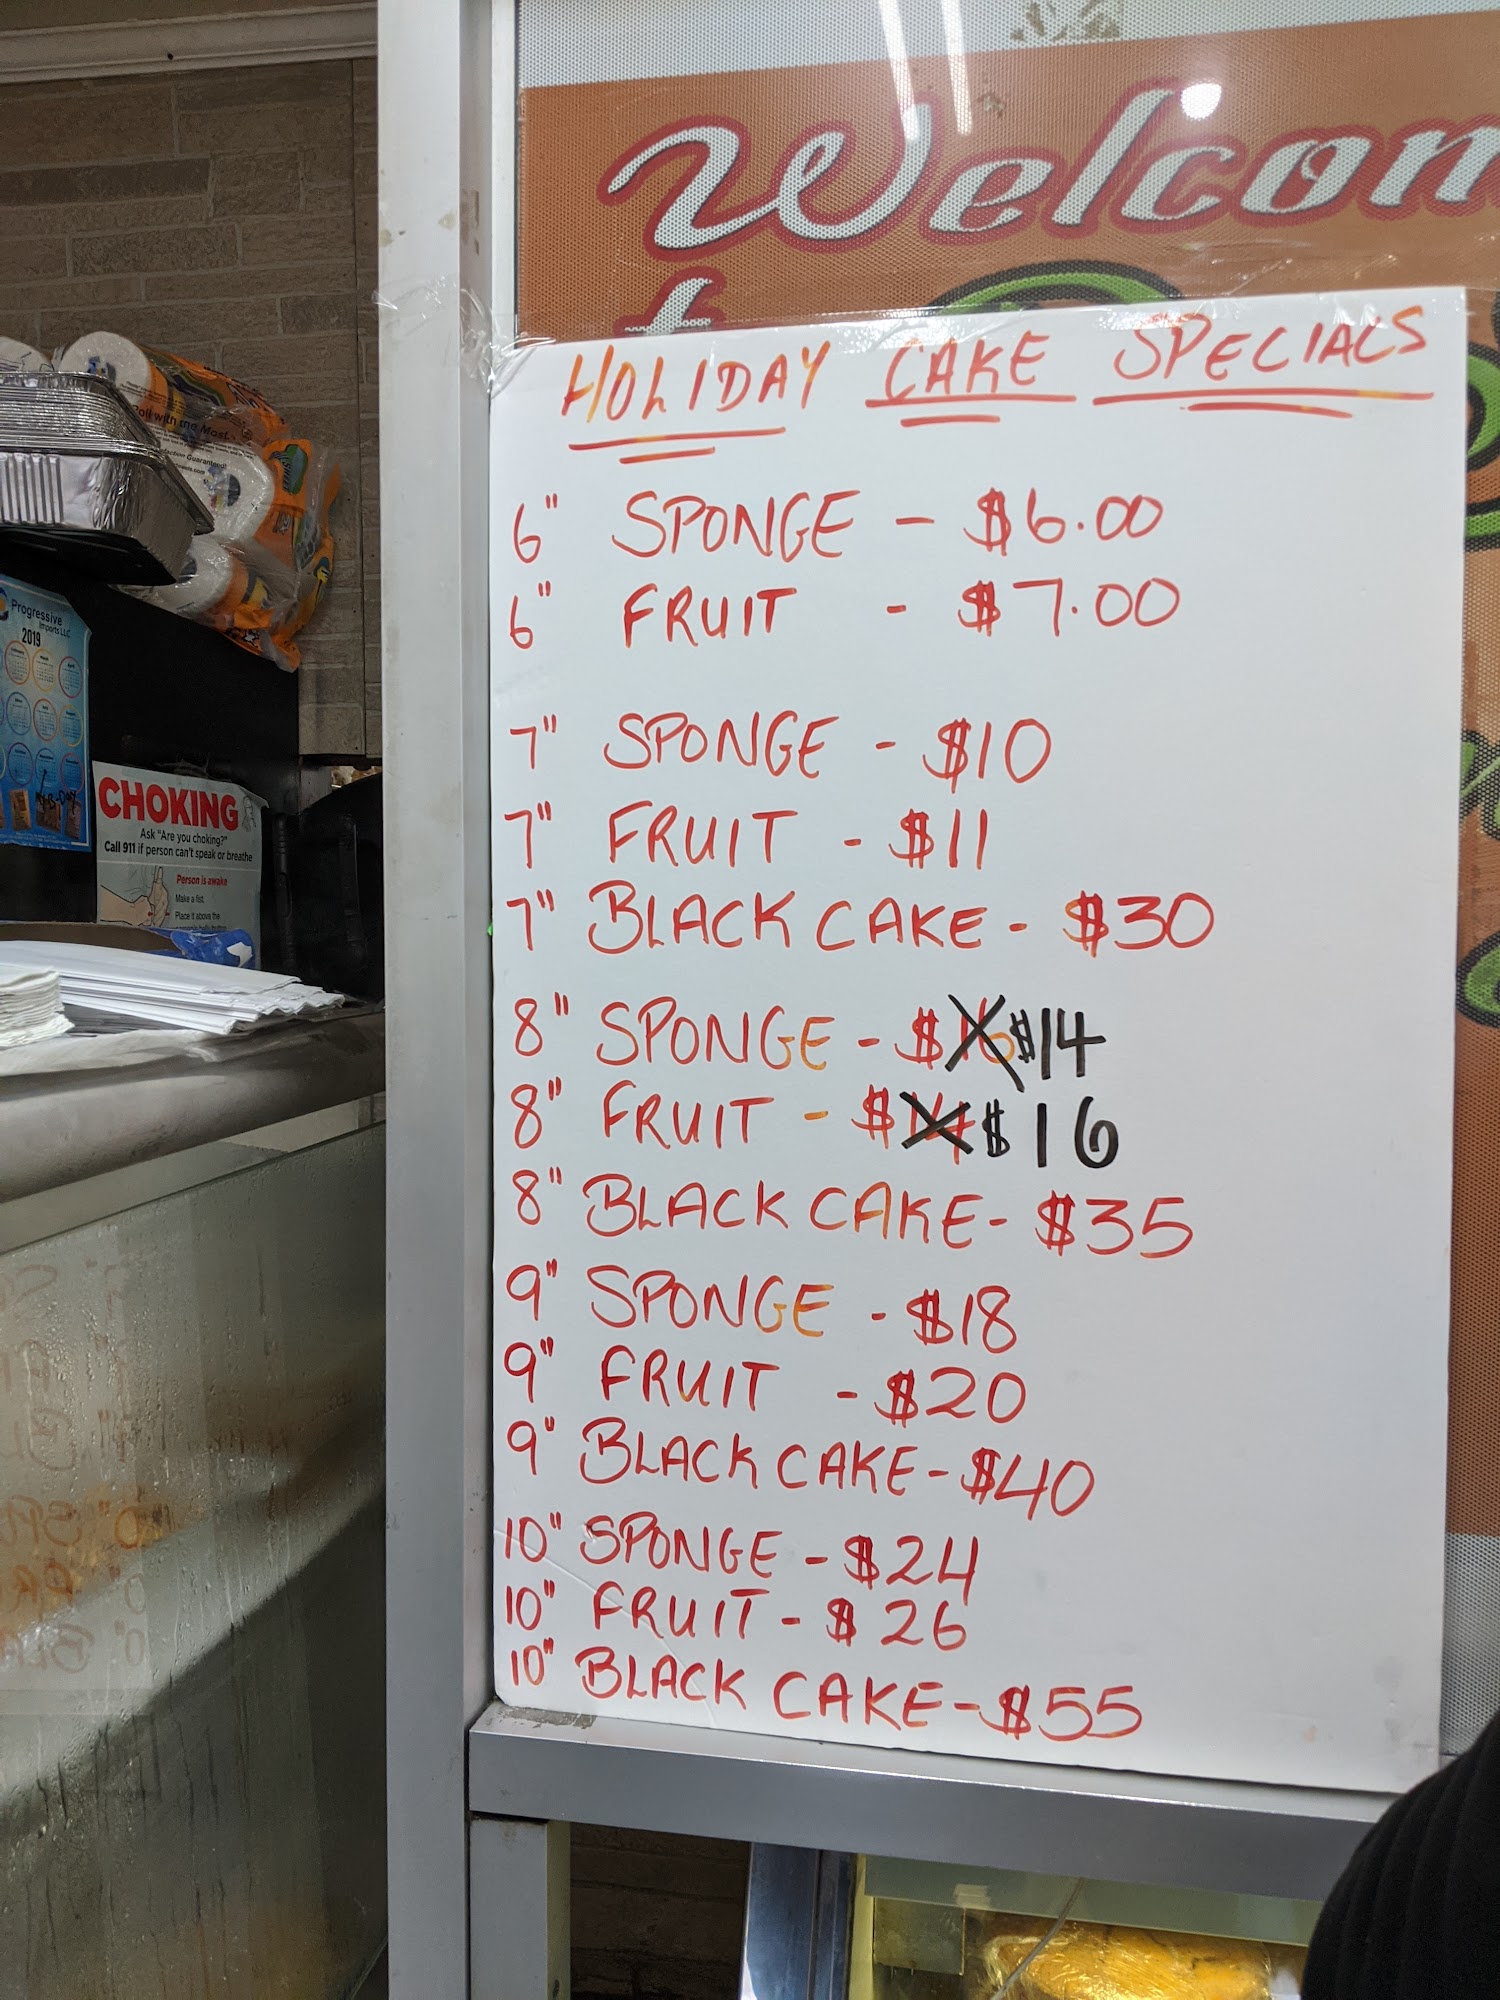 Welcom
t
HOLIDAY CAKE SPECIALS
6" SPONGE - $6.00
6" FRUIT - $7.00
7" SPONGE - $10
7" FRUIT - $11
7" BLACK CAKE - $30
8" SPONGE - $16 $14
8" FRUIT - $14 $16
8" BLACK CAKE - $35
9" SPONGE - $18
9" FRUIT - $20
9" BLACK CAKE - $40
10" SPONGE - $24
10" FRUIT - $26
10" BLACK CAKE - $55
Progressive
Imports LLC
2019
CHOKING
Ask "Are you choking?"
Call 911 if person can't speak or breathe
Person is awake
Make a fist
Place it above the
roll with the Most
Guaranteed!